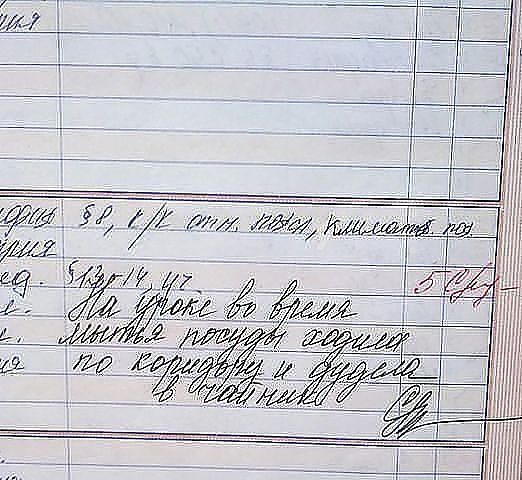 ия
§8, к/к отн. посел, климатов. поя
рия
ед. §13, 14, у7 5
На уроке во время
мытья посуды ходила
ия по коридору и дудела
в чайник